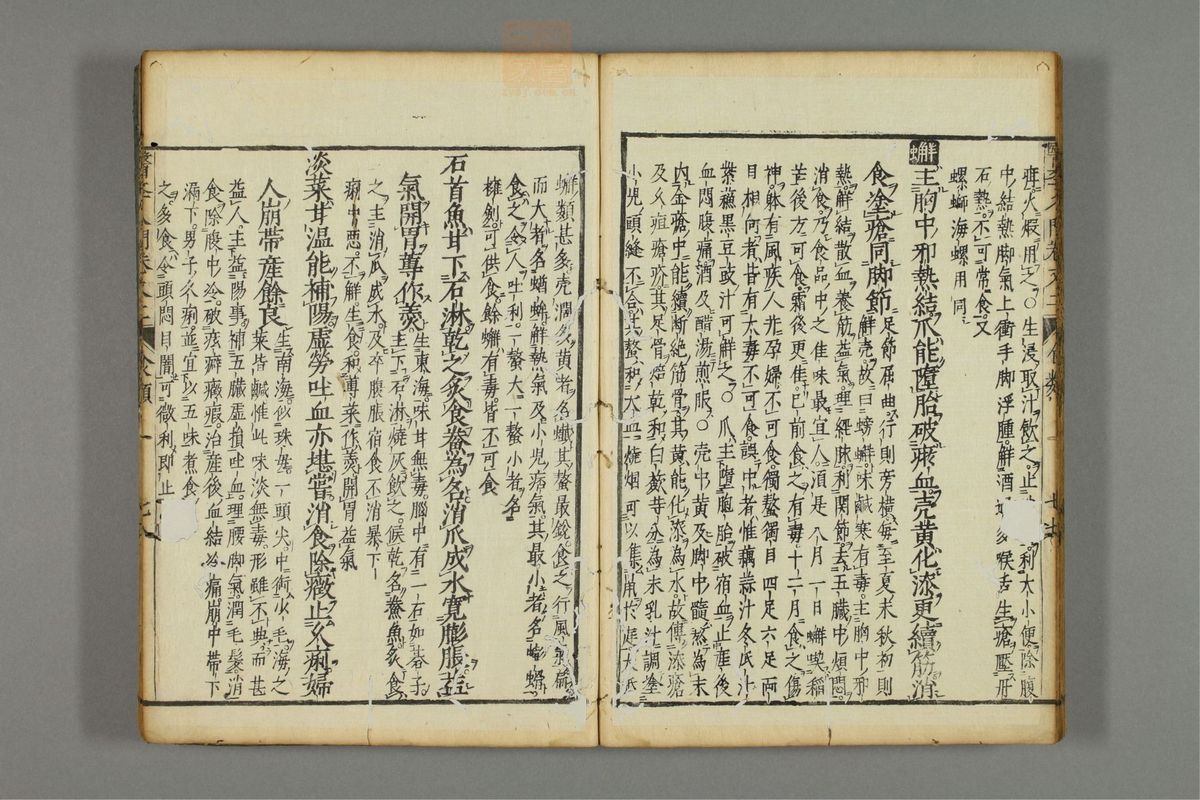 疰火煅用之○生浸取汁飲之止 利大小便除腹
中結熱脚氣上衝手脚浮腫解酒 多喉舌生瘡壓丹
石熱不可常食又
螺螄海螺用同
蟹主胸中邪熱結爪能墮胎破瘀血壳黃化漆更續筋消
食塗瘡同脚節足節屈曲行則旁橫每至夏末秋初則
解壳故曰螃蟹味鹹寒有毒主胸中邪
熱解結散血養筋益氣理經脉利關節去五臟中煩悶
消食乃食品中之佳味最宜人須是八月一日蟹喫稻
芒後方可食霜後更佳已前食之有毒十二月食之傷
神躰有風疾人并孕婦不可食獨螯獨目四足六足兩
目相向者皆有大毒不可食誤中者惟藕蒜汁冬瓜汁
紫蘇黑豆豉汁可解之○爪主墮胞胎破宿血止產後
血悶腹痛酒及醋湯煎服○壳中黃及脚中髓熬為末
內金瘡中能續斷絕筋骨其黃能化漆為水故傅漆瘡
及久疽瘡疥其足骨焙乾和白蘞等分為末乳汁調塗
小兒頭縫不合其螯和大血燒烟可以集鼠於庭大抵
蟹類甚多壳濶多黃者名蠘其螯最銳食之行風氣扁
而大者名蝤蛑解熱氣及小兒痞氣其最小者名蟛蜞
食之令人吐利一螯大一螯小者名
擁劍可供食餘蟹有毒皆不可食
石首魚甘下石淋乾之炙食鯗為名消瓜成水寬膨脹益
氣開胃蓴作羹生東海味甘無毒腦中有一石如碁子
主下石淋燒灰飲之候乾名鯗魚炙食
之主消瓜成水及卒腹脹宿食不消暴下
痢中惡不解生食和蓴菜作羹開胃益氣
淡菜甘溫能補陽虛勞吐血亦堪嘗消食除癥止久痢婦
人崩帶產餘良生南海似珠母一頭尖中銜小毛海之
菜皆鹹惟此味淡無毒形雖不典而甚
益人主益陽事補五臟虛損吐血理腰脚氣潤毛髮消
食除腹中冷破痃癖癥瘕治產後血結冷痛崩中帶下
漏下男子久痢並宜以五味煮食
之多食令頭悶目闇可微利即止